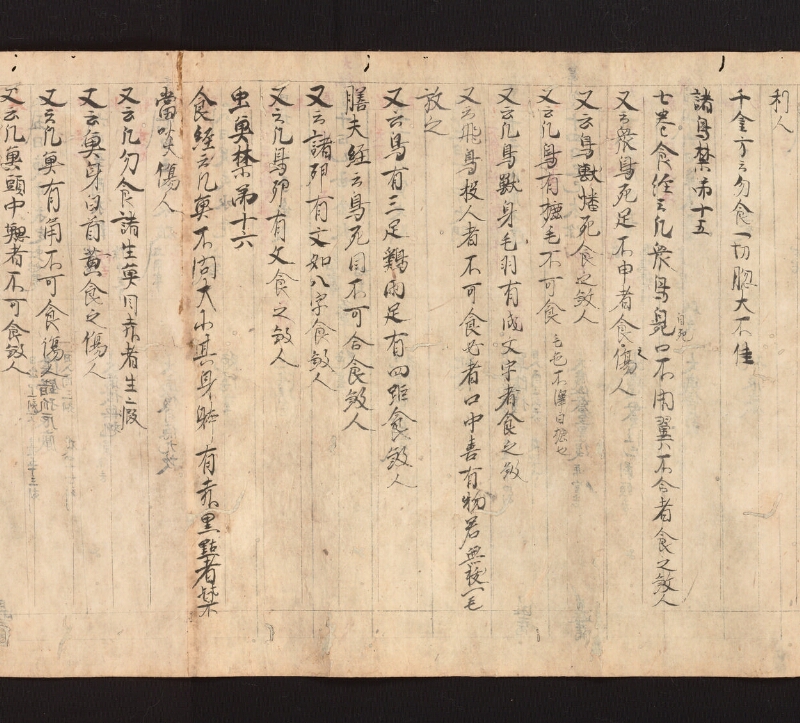 利人
千金方云勿食一切腦大不佳
諸鳥禁第十五
七巻食經云凡衆鳥自死口不閇翼不合者食之煞人
又云衆鳥死足不申者食之傷人
又云鳥獸燔死食之煞人
又云凡鳥有毛不可食
又云凡鳥獸身毛羽有成文字者食之煞
又云飛鳥投人者不可食必者口中喜有物若無拔一毛
放之
又云鳥有三足鷄兩足有四距食煞人
膳夫經云鳥死目不可合食煞人
又云諸卵有文如八字食煞人
又云凡鳥卵有文食之煞人
虫魚禁第十六
食經云凡魚不問大小其身體有赤黒點者禁
當噉傷人
又云凡勿食諸生魚目赤者生瘕
又云魚身白首黄食之傷人
又云凡魚有角不可食傷人
又云凡魚頭中者不可食煞人